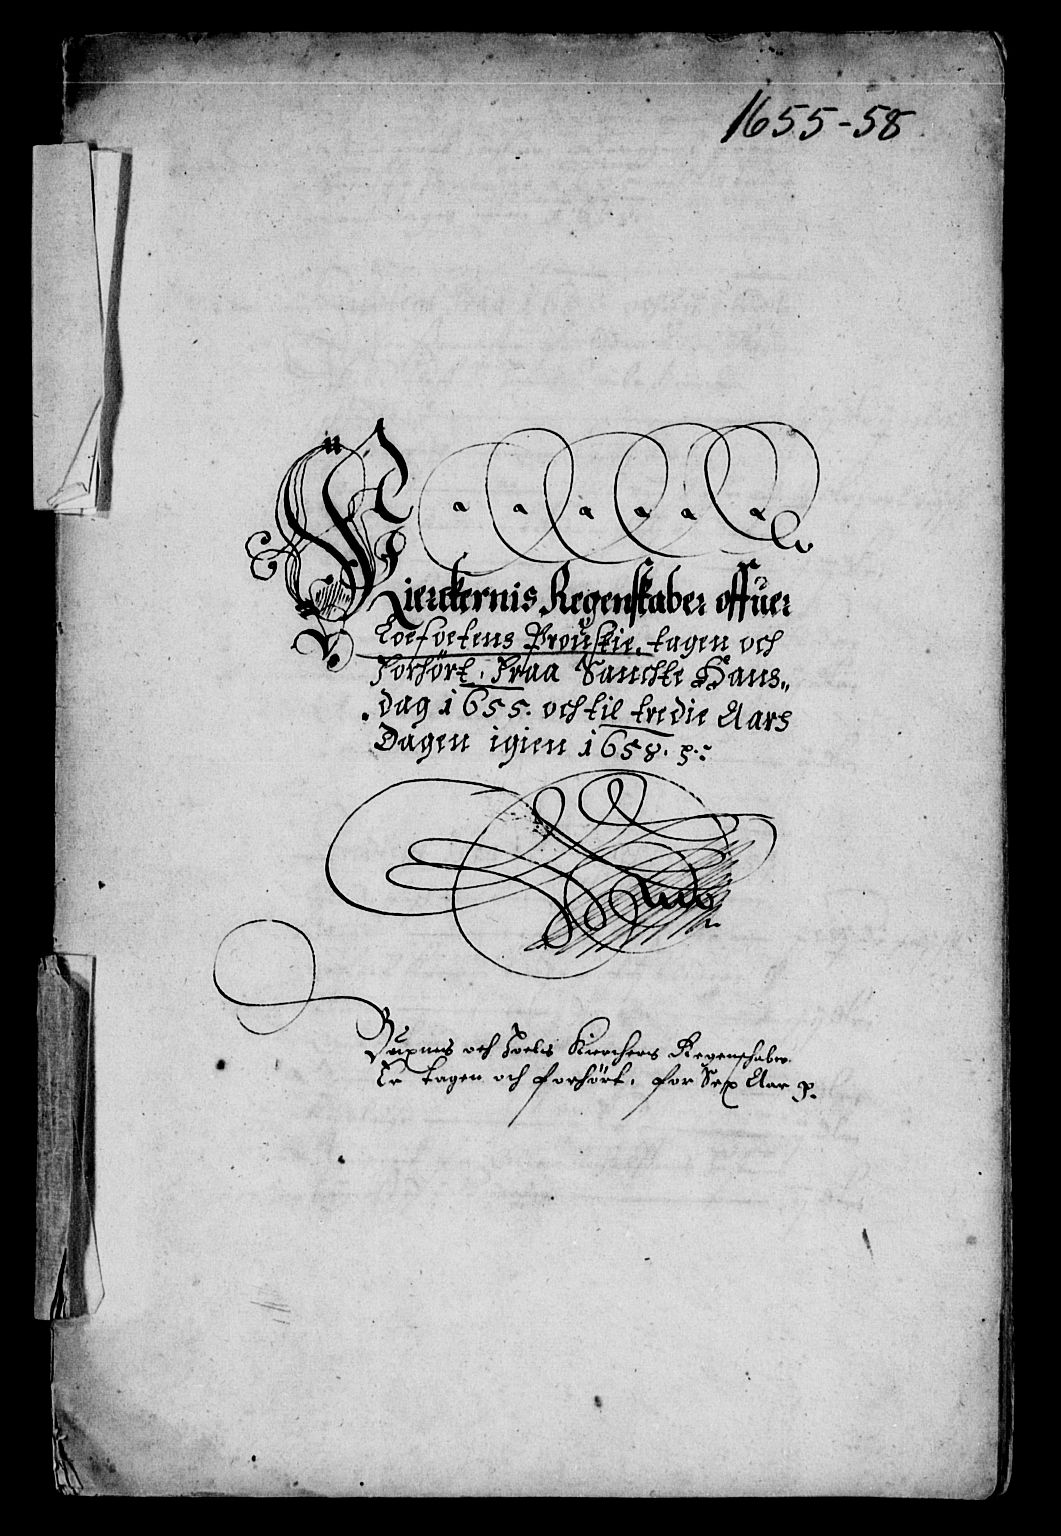 1655-58
Kierckernis Regenskaber offuer
Loefoetens Proustie, tagen och
Forhört, Fraa Sanckte Hans„
dag 1655. och til tredie Aars
Dagen igien 1658. p:
Buxnes och Hoels Kirchers Regenschaber
Er tagen och forhört, for Sex Aar p.